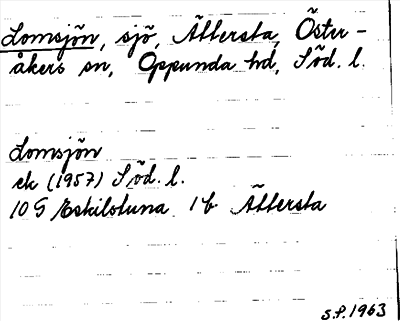 Lomsjön, sjö, Ättersta, Öster-
åkers sn, Oppunda hd, Söd. l.
Lomsjön
ek (1957) Söd. l.
10 G Eskilstuna 1b Ättersta
S.P. 1963